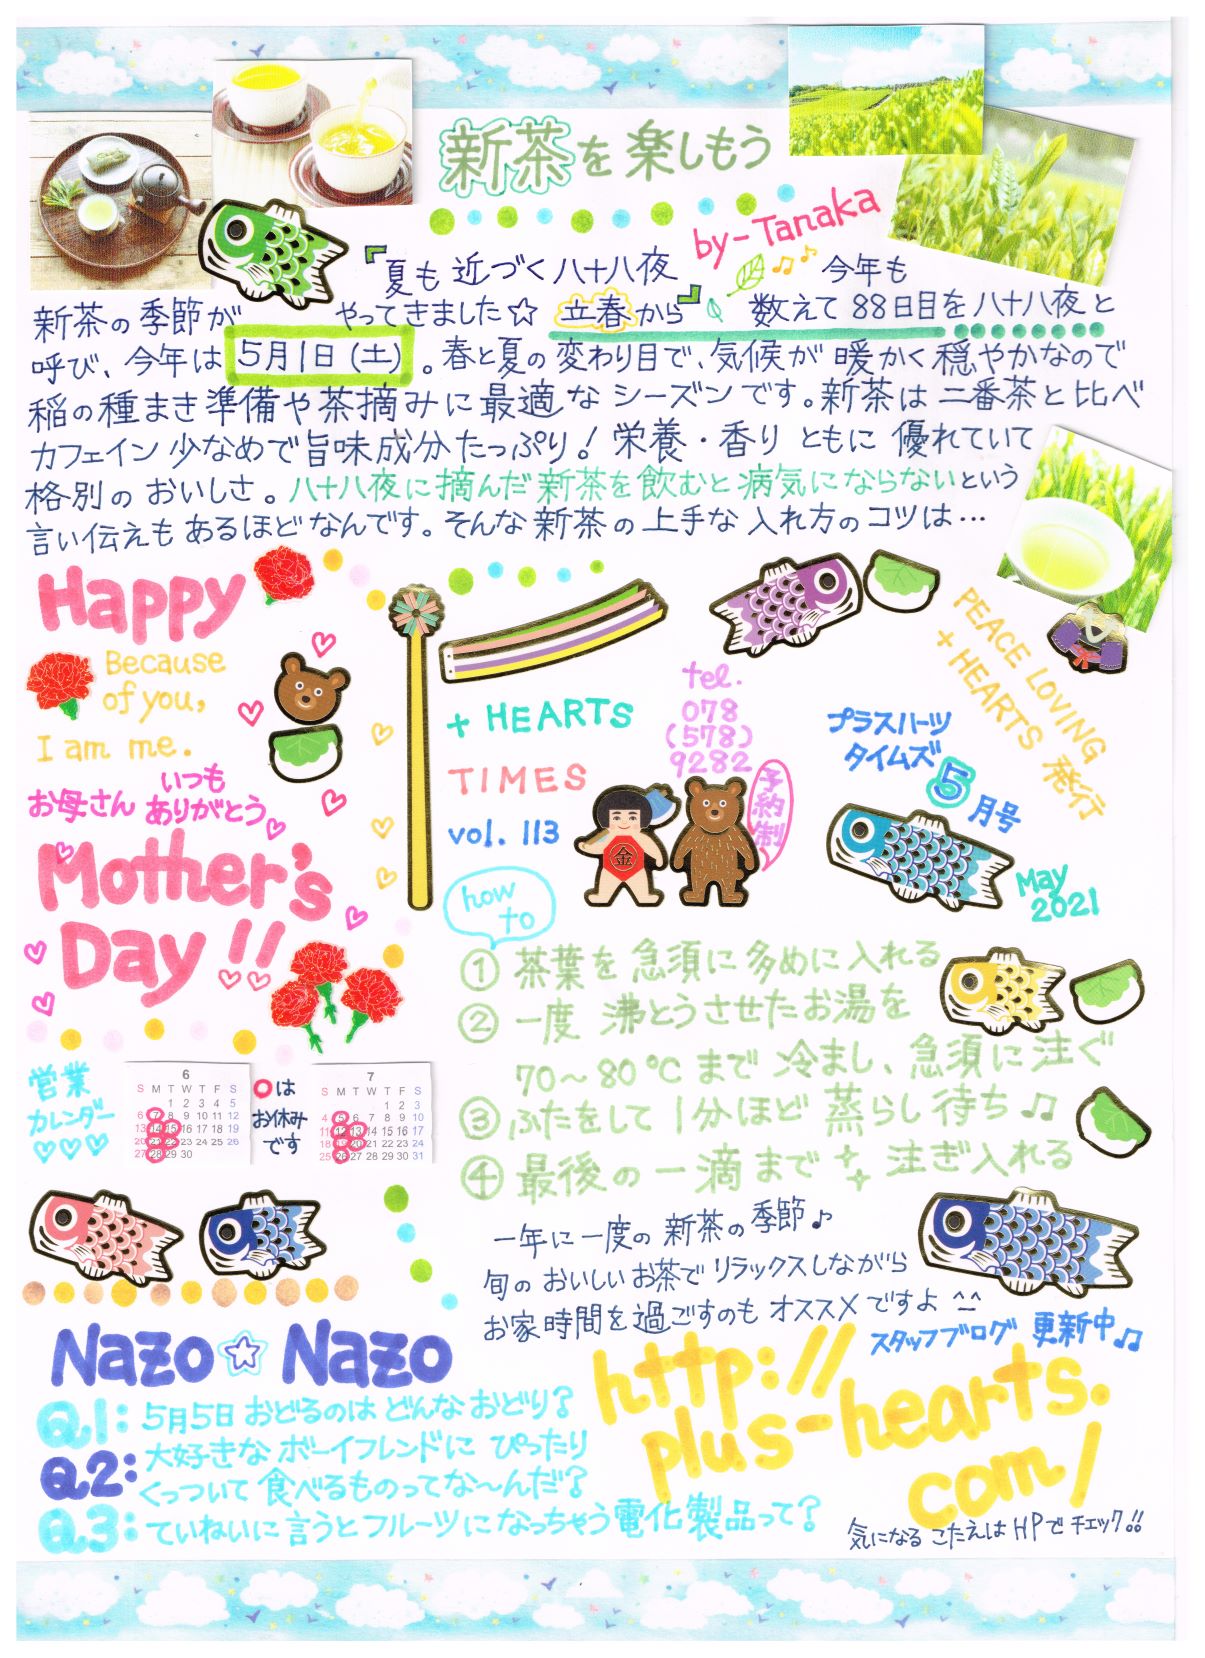 新茶を楽しもう
by-Tanaka
『夏も近づく八十八夜』今年も
新茶の季節がやってきました☆ 立春から数えて88日目を八十八夜と
呼び、今年は5月1日(土)。春と夏の変わり目で、気候が暖かく穏やかなので
稲の種まき準備や茶摘みに最適なシーズンです。新茶は二番茶と比べ
カフェイン少なめで旨味成分たっぷり!栄養・香りともに優れていて
格別のおいしさ。八十八夜に摘んだ新茶を飲むと病気にならないという
言い伝えもあるほどなんです。そんな新茶の上手な入れ方のコツは…
Happy
Because
of you,
I am me.
お母さん いつも
ありがとう
Mother's
Day!!
+ HEARTS
TIMES
vol. 113
tel.
078
(578)
9282
予約制
金
プラスハーツ
タイムズ
5月号
May
2021
PEACE LOVING
+ HEARTS 発行
how
to
① 茶葉を急須に多めに入れる
② 一度沸とうさせたお湯を
70〜80℃まで冷まし、急須に注ぐ
③ ふたをして1分ほど蒸らし待ち♫
④ 最後の一滴まで注ぎ入れる
一年に一度の新茶の季節♪
旬のおいしいお茶でリラックスしながら
お家時間を過ごすのもオススメですよ^^
営業
カレンダー
♡♡♡
6
S M T W T F S
1 2 3 4 5
6 7 8 9 10 11 12
13 14 15 16 17 18 19
20 21 22 23 24 25 26
27 28 29 30
○は
お休み
です
7
S M T W T F S
1 2 3
4 5 6 7 8 9 10
11 12 13 14 15 16 17
18 19 20 21 22 23 24
25 26 27 28 29 30 31
Nazo☆Nazo
Q.1: 5月5日おどるのはどんなおどり?
Q.2: 大好きなボーイフレンドにぴったり
くっついて食べるものってな〜んだ?
Q.3: ていねいに言うとフルーツになっちゃう電化製品って?
スタッフブログ 更新中♫
http://
plus-hearts.
com/
気になるこたえはHPでチェック!!